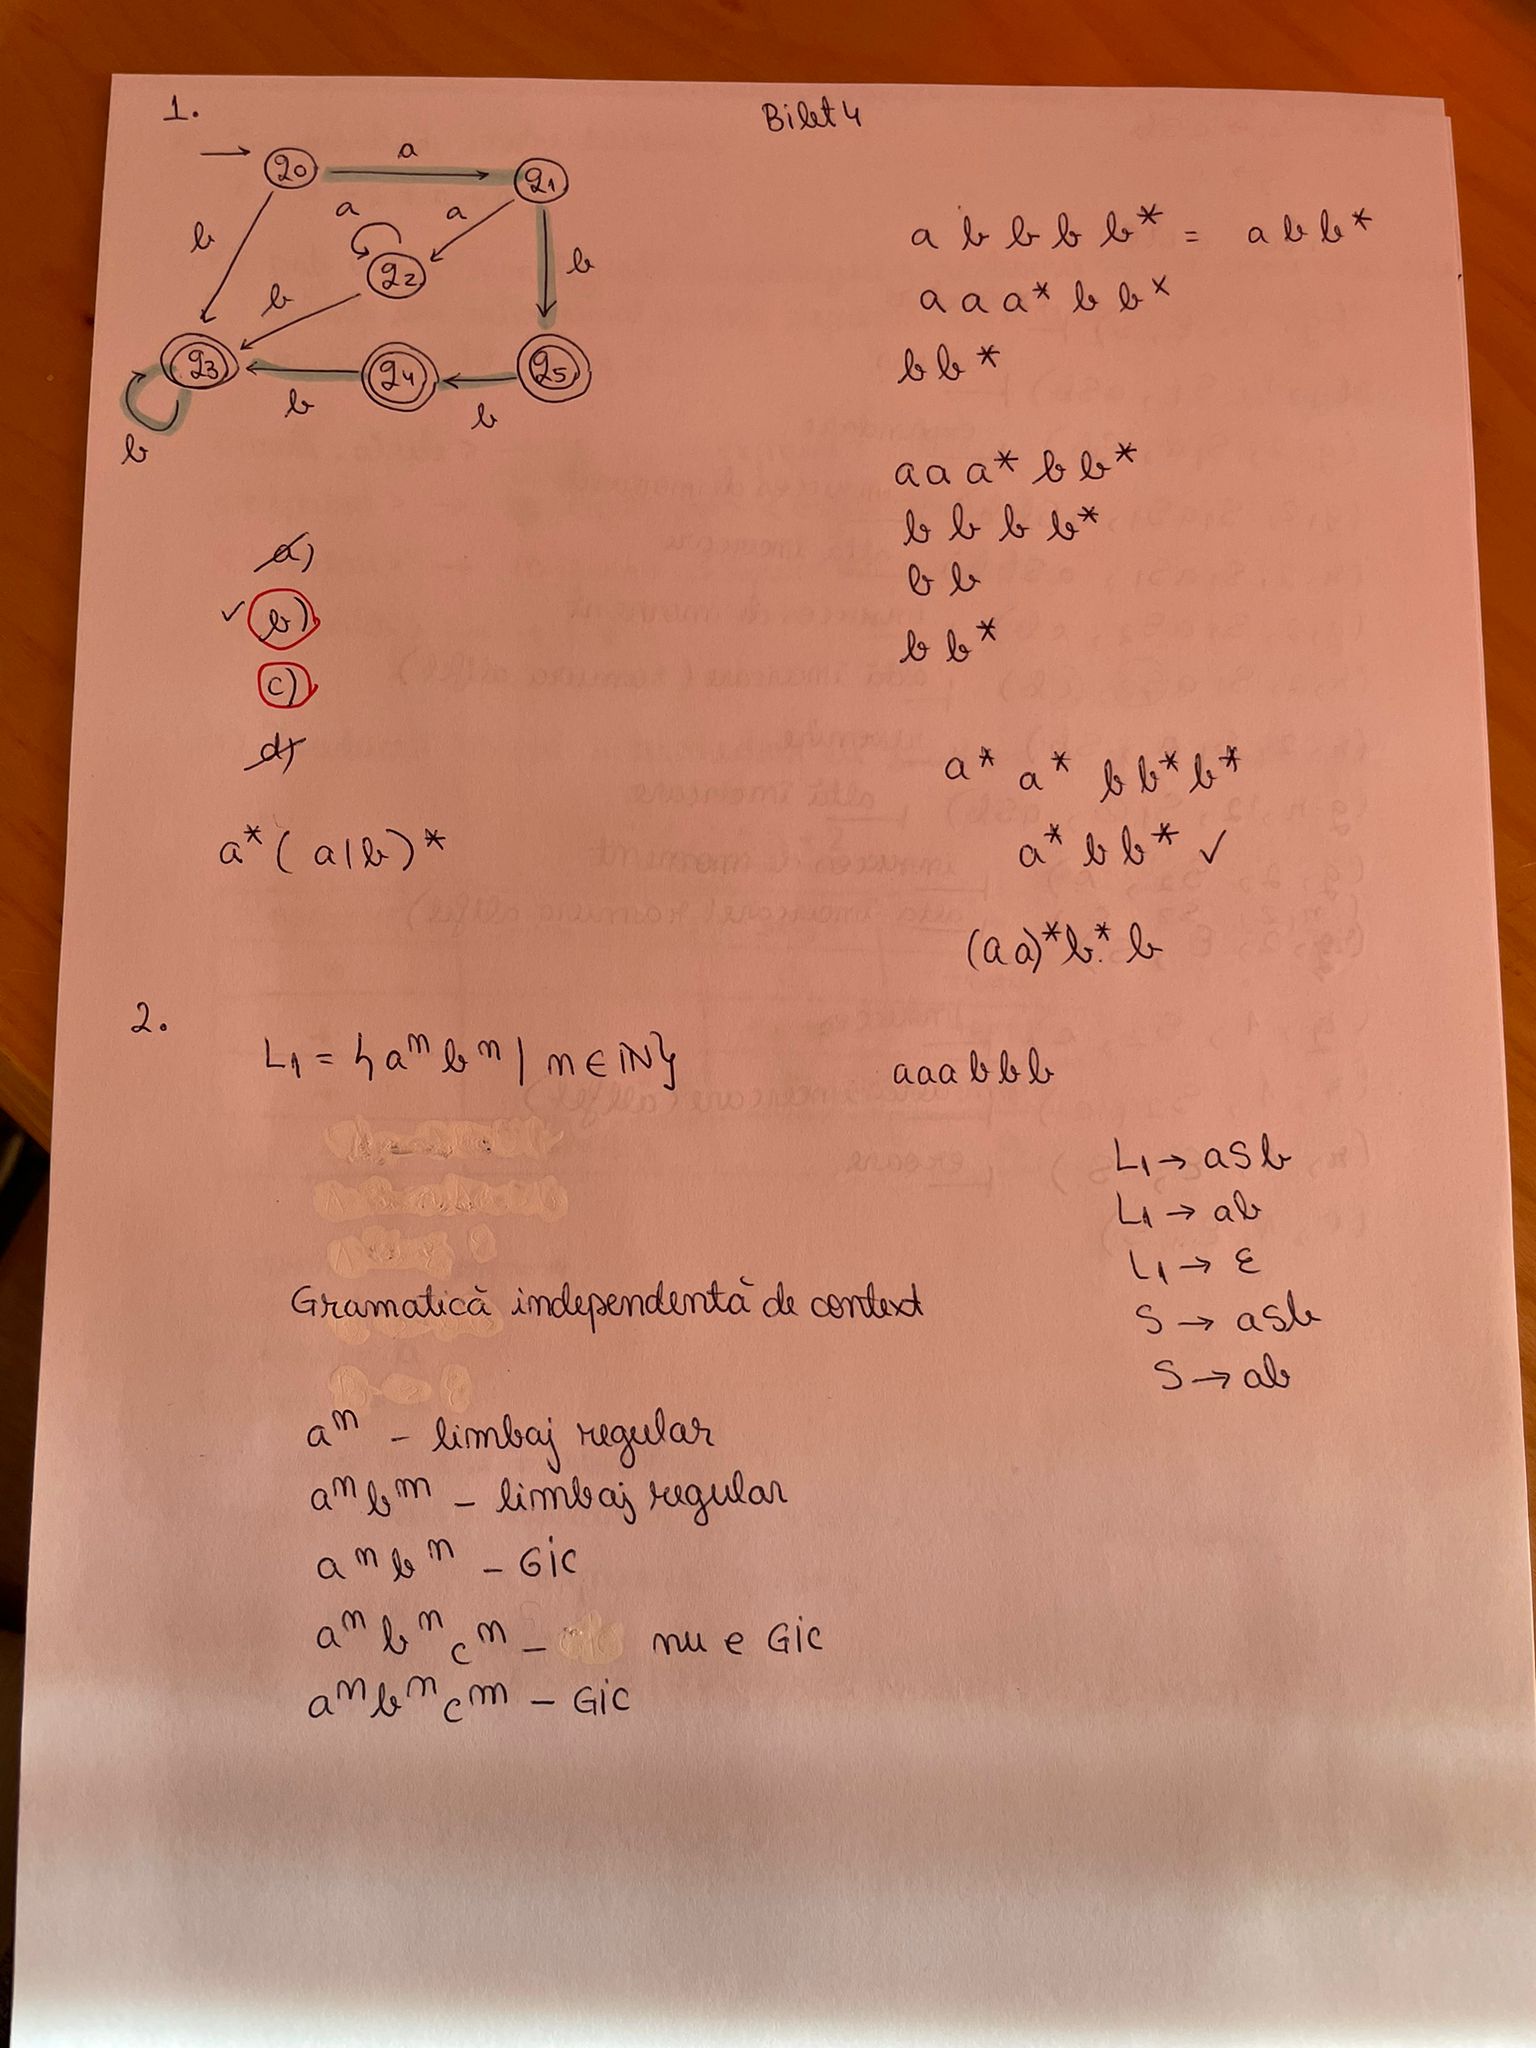 1.
Bilet 4
q0 a q1
b a a b
q2
b
q3 q4 q5
b b b
a b b b b* = a b b*
a a a* b b*
b b*
a a a* b b*
b b b b*
b b
b b*
a)
✓ b)
c)
d)
a* a* b b* b*
a* (a|b)*
a* b b* ✓
(aa)* b* b
2.
L1 = {a^n b^n | n ∈ N}
aaabbb
L1 → aSb
L1 → ab
L1 → ε
S → aSb
S → ab
Gramatică independentă de context
a^n - limbaj regular
a^n b^m - limbaj regular
a^n b^n - GiC
a^n b^n c^n - nu e GiC
a^n b^n c^m - GiC